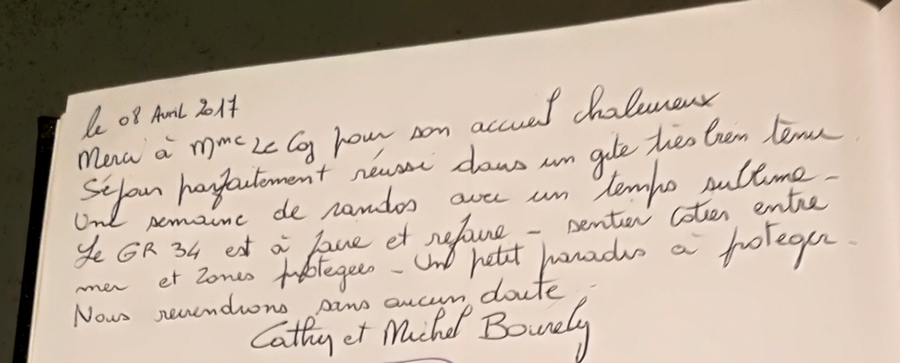 le 08 Avril 2017
Merci à Mme Le Coq pour son accueil chaleureux
Séjour parfaitement réussi dans un gite très bien tenu.
Une semaine de randos avec un temps sublime -
Le GR 34 est à faire et refaire - sentier cotier entre
mer et zones protégées - Un petit paradis à proteger -
Nous reviendrons sans aucun doute -
Cathy et Michel Bourely